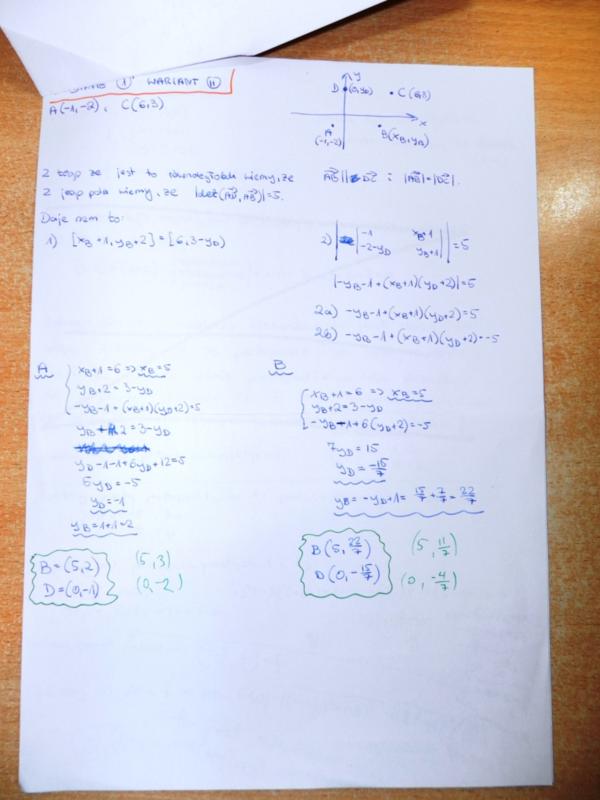 ① WARIANT ⑪
A(-1,-2), C(6,3)
y
D (0,yD)
C(6,3)
x
A
(-1,-2)
B(xB,yB)
że jest to równoległobok wiemy, że AB || DC i |AB|=|DC|.
Z pola wiemy, że |det(AD, AB)|=5.
Daje nam to:
1) [xB+1, yB+2] = [6, 3-yD)
2) | |-1 xB+1| | = 5
-2-yD yB+1
|-yB-1+(xB+1)(yD+2)|=5
2a) -yB-1+(xB+1)(yD+2)=5
2b) -yB-1+(xB+1)(yD+2)=-5
A
xB+1=6 => xB=5
yB+2=3-yD
-yB-1+(xB+1)(yD+2)=5
yB+2=3-yD
yD-1-1+6yD+12=5
6yD=-5
yD=-1
yB=1+1=2
B=(5,2)
D=(0,-1)
(5,3)
(0,-2)
B
xB+1=6 => xB=5
yB+2=3-yD
-yB-1+6(yD+2)=-5
7yD=15
yD=-15/7
yB=-yD+1=15/7+7/7=22/7
B(5,22/7)
D(0,-15/7)
(5,11/7)
(0,-4/7)